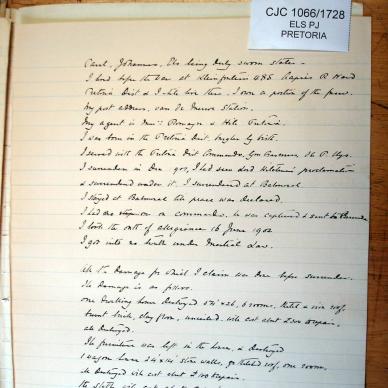 CJC 1066/1728
ELS PJ
PRETORIA
Johannes, Els being duly sworn states -
I lived before the war at Kleinfontein 488 Hapies R Ward
Pretoria Dist & I still live there. I own a portion of the farm.
My post address, van der Merwe Station.
My agent is
I was born in the Pretoria Dist
I served with the Pretoria Dist Commando,
I surrendered in Dec 1900, I had seen Lord Kitchener's proclamation
& surrendered under it. I surrendered at Balmoral
I stayed at Balmoral till peace was declared.
I had one on commando. he was captured & sent to Bermuda
I took the oath of allegiance 16 June 1902
I got into no trouble under Martial Law.
All the damage for which I claim was done before surrender.
The damage is as follows.
One dwelling house destroyed 54 x 26, 6 rooms, thatch roof,
burnt brick, clay floor, unceiled. will cost about £200 to repair,
all destroyed.
The furniture was left in the house, & destroyed
1 wagon house 24 x 14 stone walls, roof, one room.
all destroyed will cost about £100 to repair.